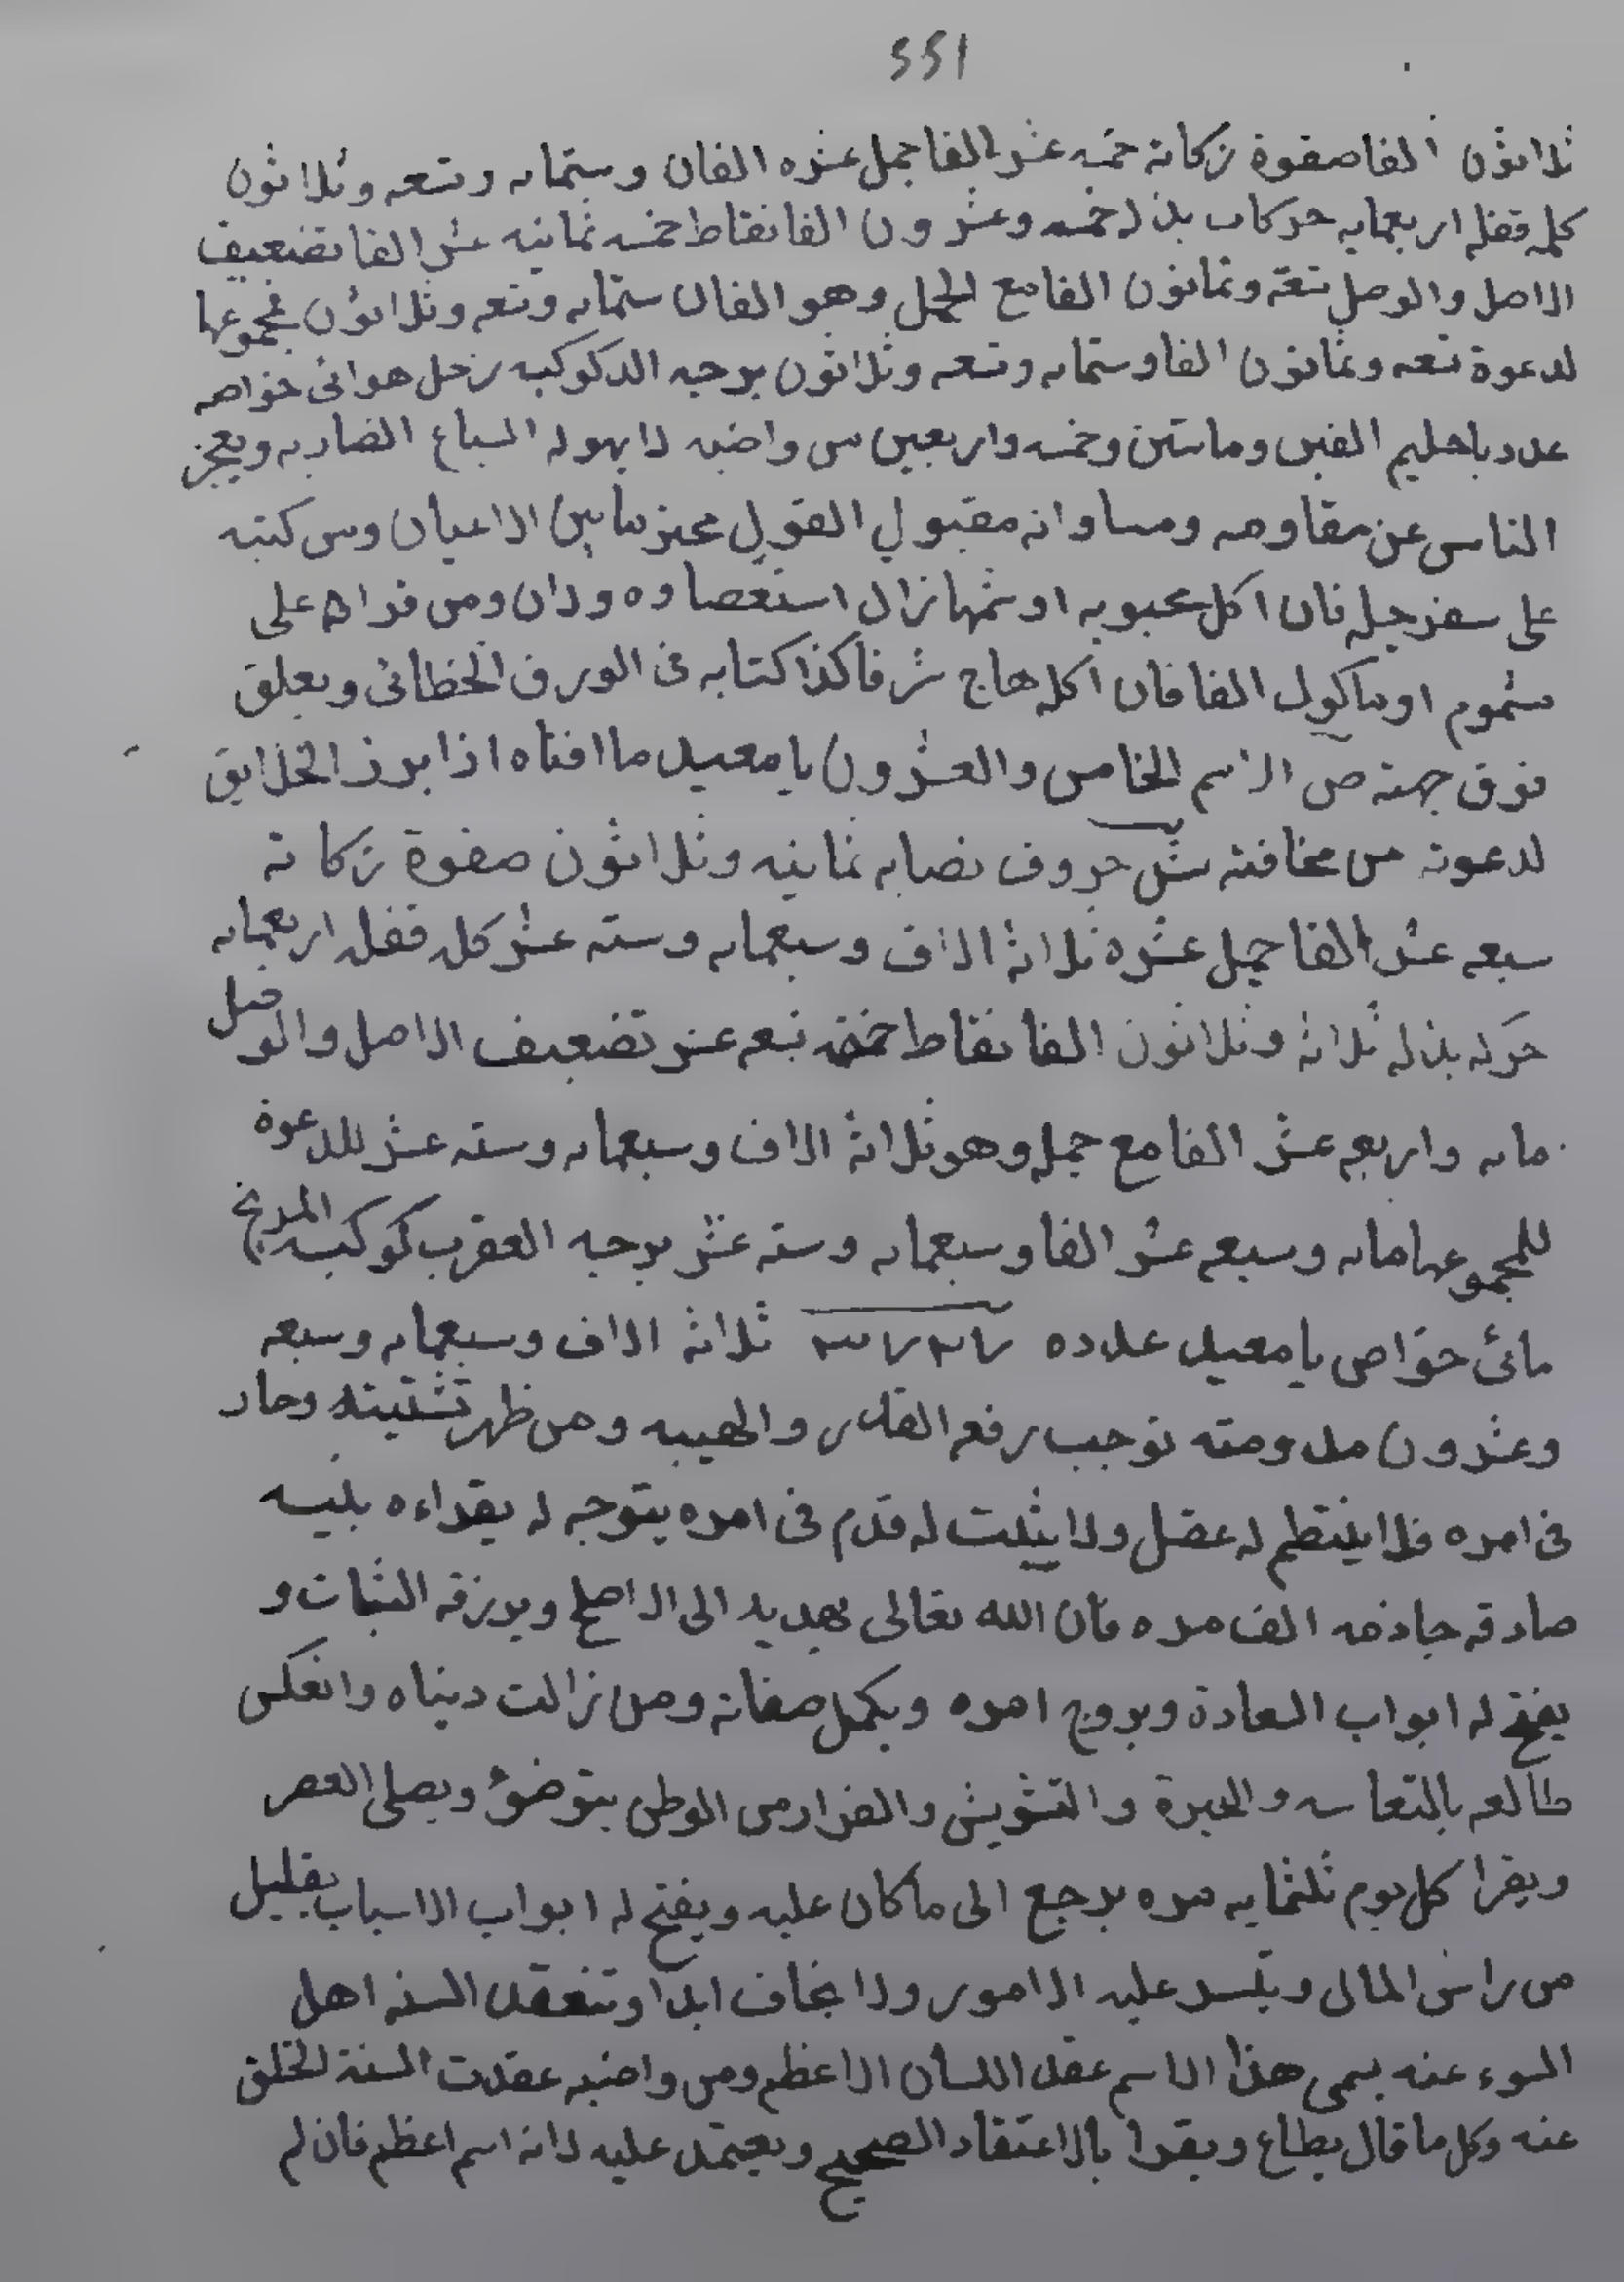 551
ثلاثون الفا صفوة زكاته خمسه عشر الفا جمل عشره الفان وستمايه وتسعه وثلاثون
كله قفله اربعمايه حركات بذله خمسه وعشرون الفا نقاط خمسه ثمانيه عشر الفا تضعيف
الاصل والوصل تسعة وثمانون الفا مع الجمل وهو الفان ستمايه وتسعه وثلاثون مجموعها
لدعوة تسعه وثمانون الفا وستمايه وتسعه وثلاثون برجيه كوكبه زحل هوائى خواصه
عدد ياحليم الفين ومايتين وخمسه واربعين من واضبه لا يهوله السباع الضاريه ويعجز
الناس عن مقاومه ومساواته مقبول القول محترما بين الاعيان ومن كتبه
على سفرجله فان اكل محبوبه او شمها زال استعصاوه ولان ومن قراه على
مشموم او ماكول الفا فان اكله هاج شرفا كذا كتابه فى الورق الخطائى ويعلق
فوق جهته ص الاسم الخامس والعشرون يا معيد ما افناه اذا برز الخلايق
لدعوته من مخافته حروف نصابه ثمانيه وثلاثون صفوة زكاته
سبعه عشر الفا جمل عشره ثلاثة الاف وسبعمايه وسته عشر كله قفله اربعمايه
حركه بذله ثلاثة وثلاثون الفا نقاط خمسه تسعه عشر تضعيف الاصل والوصل
مايه واربعه عشر الفا مع جمله وهو ثلاثة الاف وسبعمايه وسته عشر للدعوة
للمجموعها مايه وسبعه عشر الفا وسبعمايه وسته عشر برجيه العقرب كوكبه المريخ
مائى خواص يا معيد عدده ثلاثة الاف وسبعمايه وسبعه
وعشرون مداومته توجب رفع القدر والهيبه ومن ظهر تشتيته وحار
فى امره فلا ينتظم له عقل ولا يثبت له قدم فى امره يتوجه له يقراءه بنيه
صادقه جازمه الف مره فان الله تعالى يهديه الى الاصلح ويرزقه الثبات و
يفتح له ابواب السعادة ويروج امره ويكمل صفاته ومن زالت دنياه وانعكس
طالعه بالتعاسه والحيرة والتشويش والفرار من الوطن يتوضؤ ويصلى العصر
ويقرا كل يوم ثلثمايه مره يرجع الى ما كان عليه ويفتح له ابواب الاسباب بقليل
من راس المال ويتيسر عليه الامور ولا يخاف ابدا وتنعقد السنه اهل
السوء عنه يسمى هذا الاسم عقد اللسان الاعظم ومن واضبه عقدت السنة الخلق
عنه وكل ما قال يطاع ويقرا بالاعتقاد الصحيح ويعتمد عليه لانه اسم اعظم فان لم